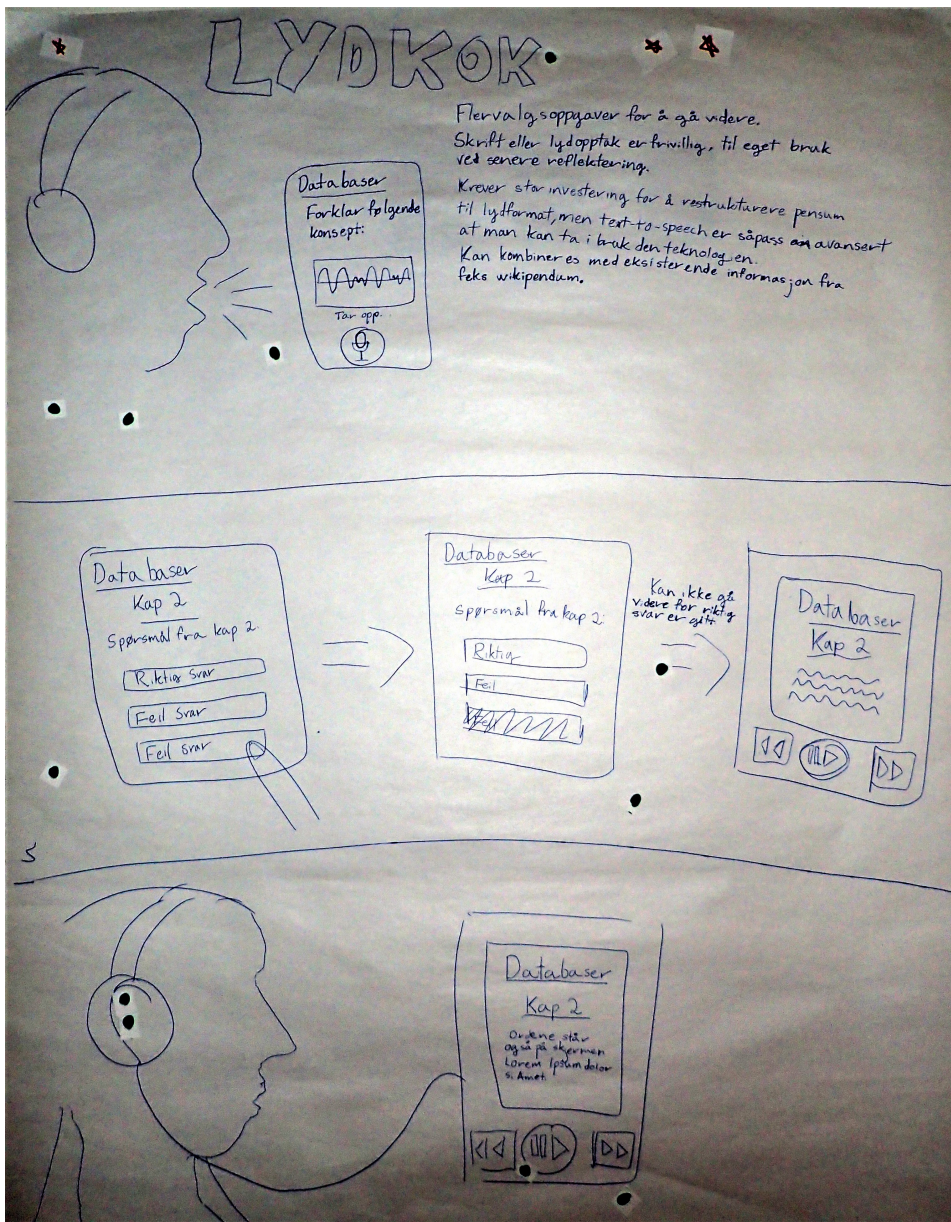 LYDKOK
Flervalgsoppgaver for å gå videre.
Skrift eller lydopptak er frivillig, til eget bruk
ved senere reflektering.
Krever stor investering for å restrukturere pensum
til lydformat, men text-to-speech er såpass avansert
at man kan ta i bruk den teknologien.
Kan kombineres med eksisterende informasjon fra
feks wikipendum.
Databaser
Forklar følgende
konsept:
Tar opp.
Databaser
Kap 2
Spørsmål fra kap 2.
Riktig svar
Feil svar
Feil svar
Databaser
Kap 2
Spørsmål fra kap 2:
Riktig
Feil
Kan ikke gå
videre før riktig
svar er gitt
Databaser
Kap 2
Databaser
Kap 2
Ordene står
også på skjermen
Lorem Ipsum dolor
si Amet.